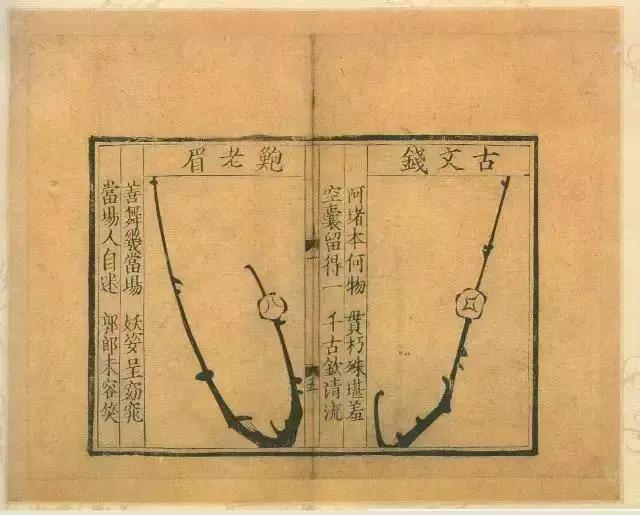 古文錢
阿堵本何物　貫朽殊堪羞
空囊留得一　千古欽清流
一
五
鮑老眉
善舞幾當場　妖姿呈窈窕
當場人自迷　郭郎未容笑